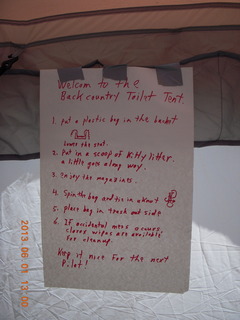 Welcome to the
Backcountry Toilet Tent.
1. put a plastic bag in the bucket
lower the seat.
2. Put in a scoop of Kitty litter.
a little goes a long way.
3. enjoy the magazines.
4. Spin the bag and tie in a knot
5. place bag in trash out side
6. If accidental mess occures,
clorox wipes are available
for cleanup.
Keep it nice for the next
Pilot!
2013 06 01 12:00